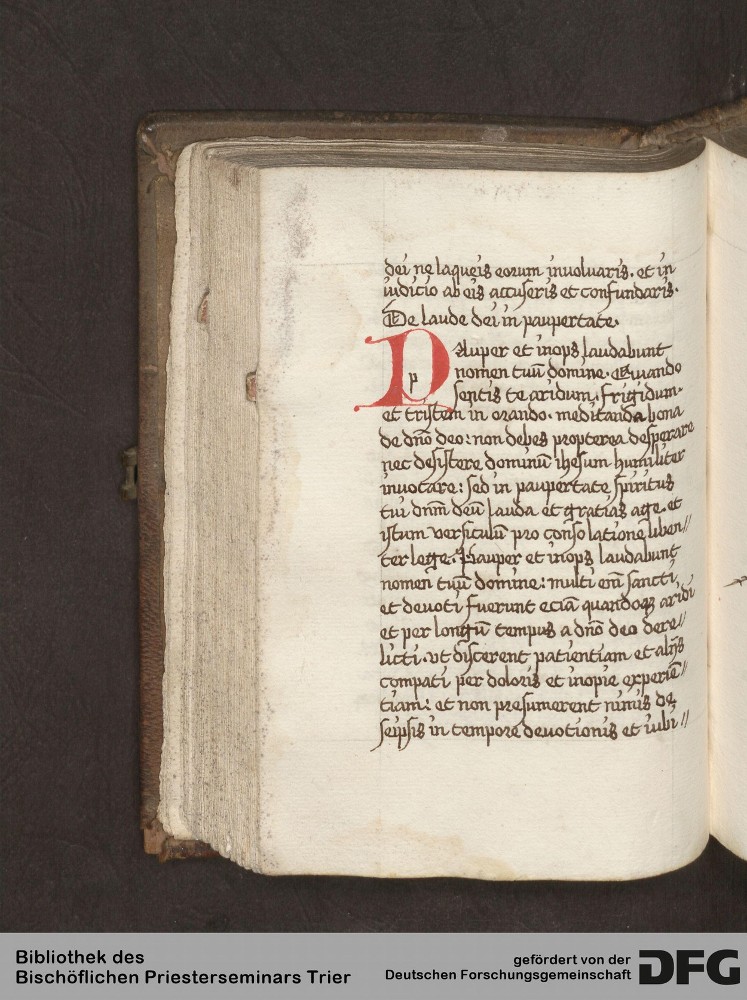 dei ne laqueis eorum inuoluaris. et in
iudicio ab eis accuseris et confundaris.
De laude dei in paupertate.
PAuper et inops laudabunt
nomen tuū domine. Quando
sentis te aridum. frigidum.
et tristem in orando. meditanda bona
de dn̄o deo: non debes propterea desperare
nec desistere dominū ihesum humiliter
inuocare: sed in paupertate spiritus
tui dn̄m deū lauda et gratias age. et
istum versiculū pro consolatione liben//
ter lege. Pauper et inops laudabunt
nomen tuū domine: multi em̄ sancti
et deuoti fuerunt eciā quandoqꝫ aridi
et per longū tempus a dn̄o deo dere//
licti. vt discerent patientiam et alijs
compati per doloris et inopie experiē//
tiam: et non presumerent nimis de
seipsis in tempore deuotionis et iubi//
Bibliothek des
Bischöflichen Priesterseminars Trier
gefördert von der
Deutschen Forschungsgemeinschaft
DFG